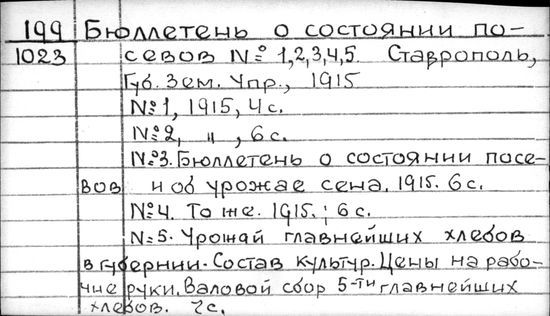 199 Бюллетень о состоянии по-
1023 севов №: 1,2,3,4,5. Ставрополь,
Губ. Зем. Упр., 1915
№1, 1915, 4 с.
№2, " , 6 с.
№3. Бюллетень о состоянии посе-
вов и об урожае сена. 1915. 6 с.
№4. То же. 1915.; 6 с.
№5. Урожай главнейших хлебов
в губернии. Состав культур. Цены на рабо-
чие руки. Валовой сбор 5-ти главнейших
хлебов. 7 с.